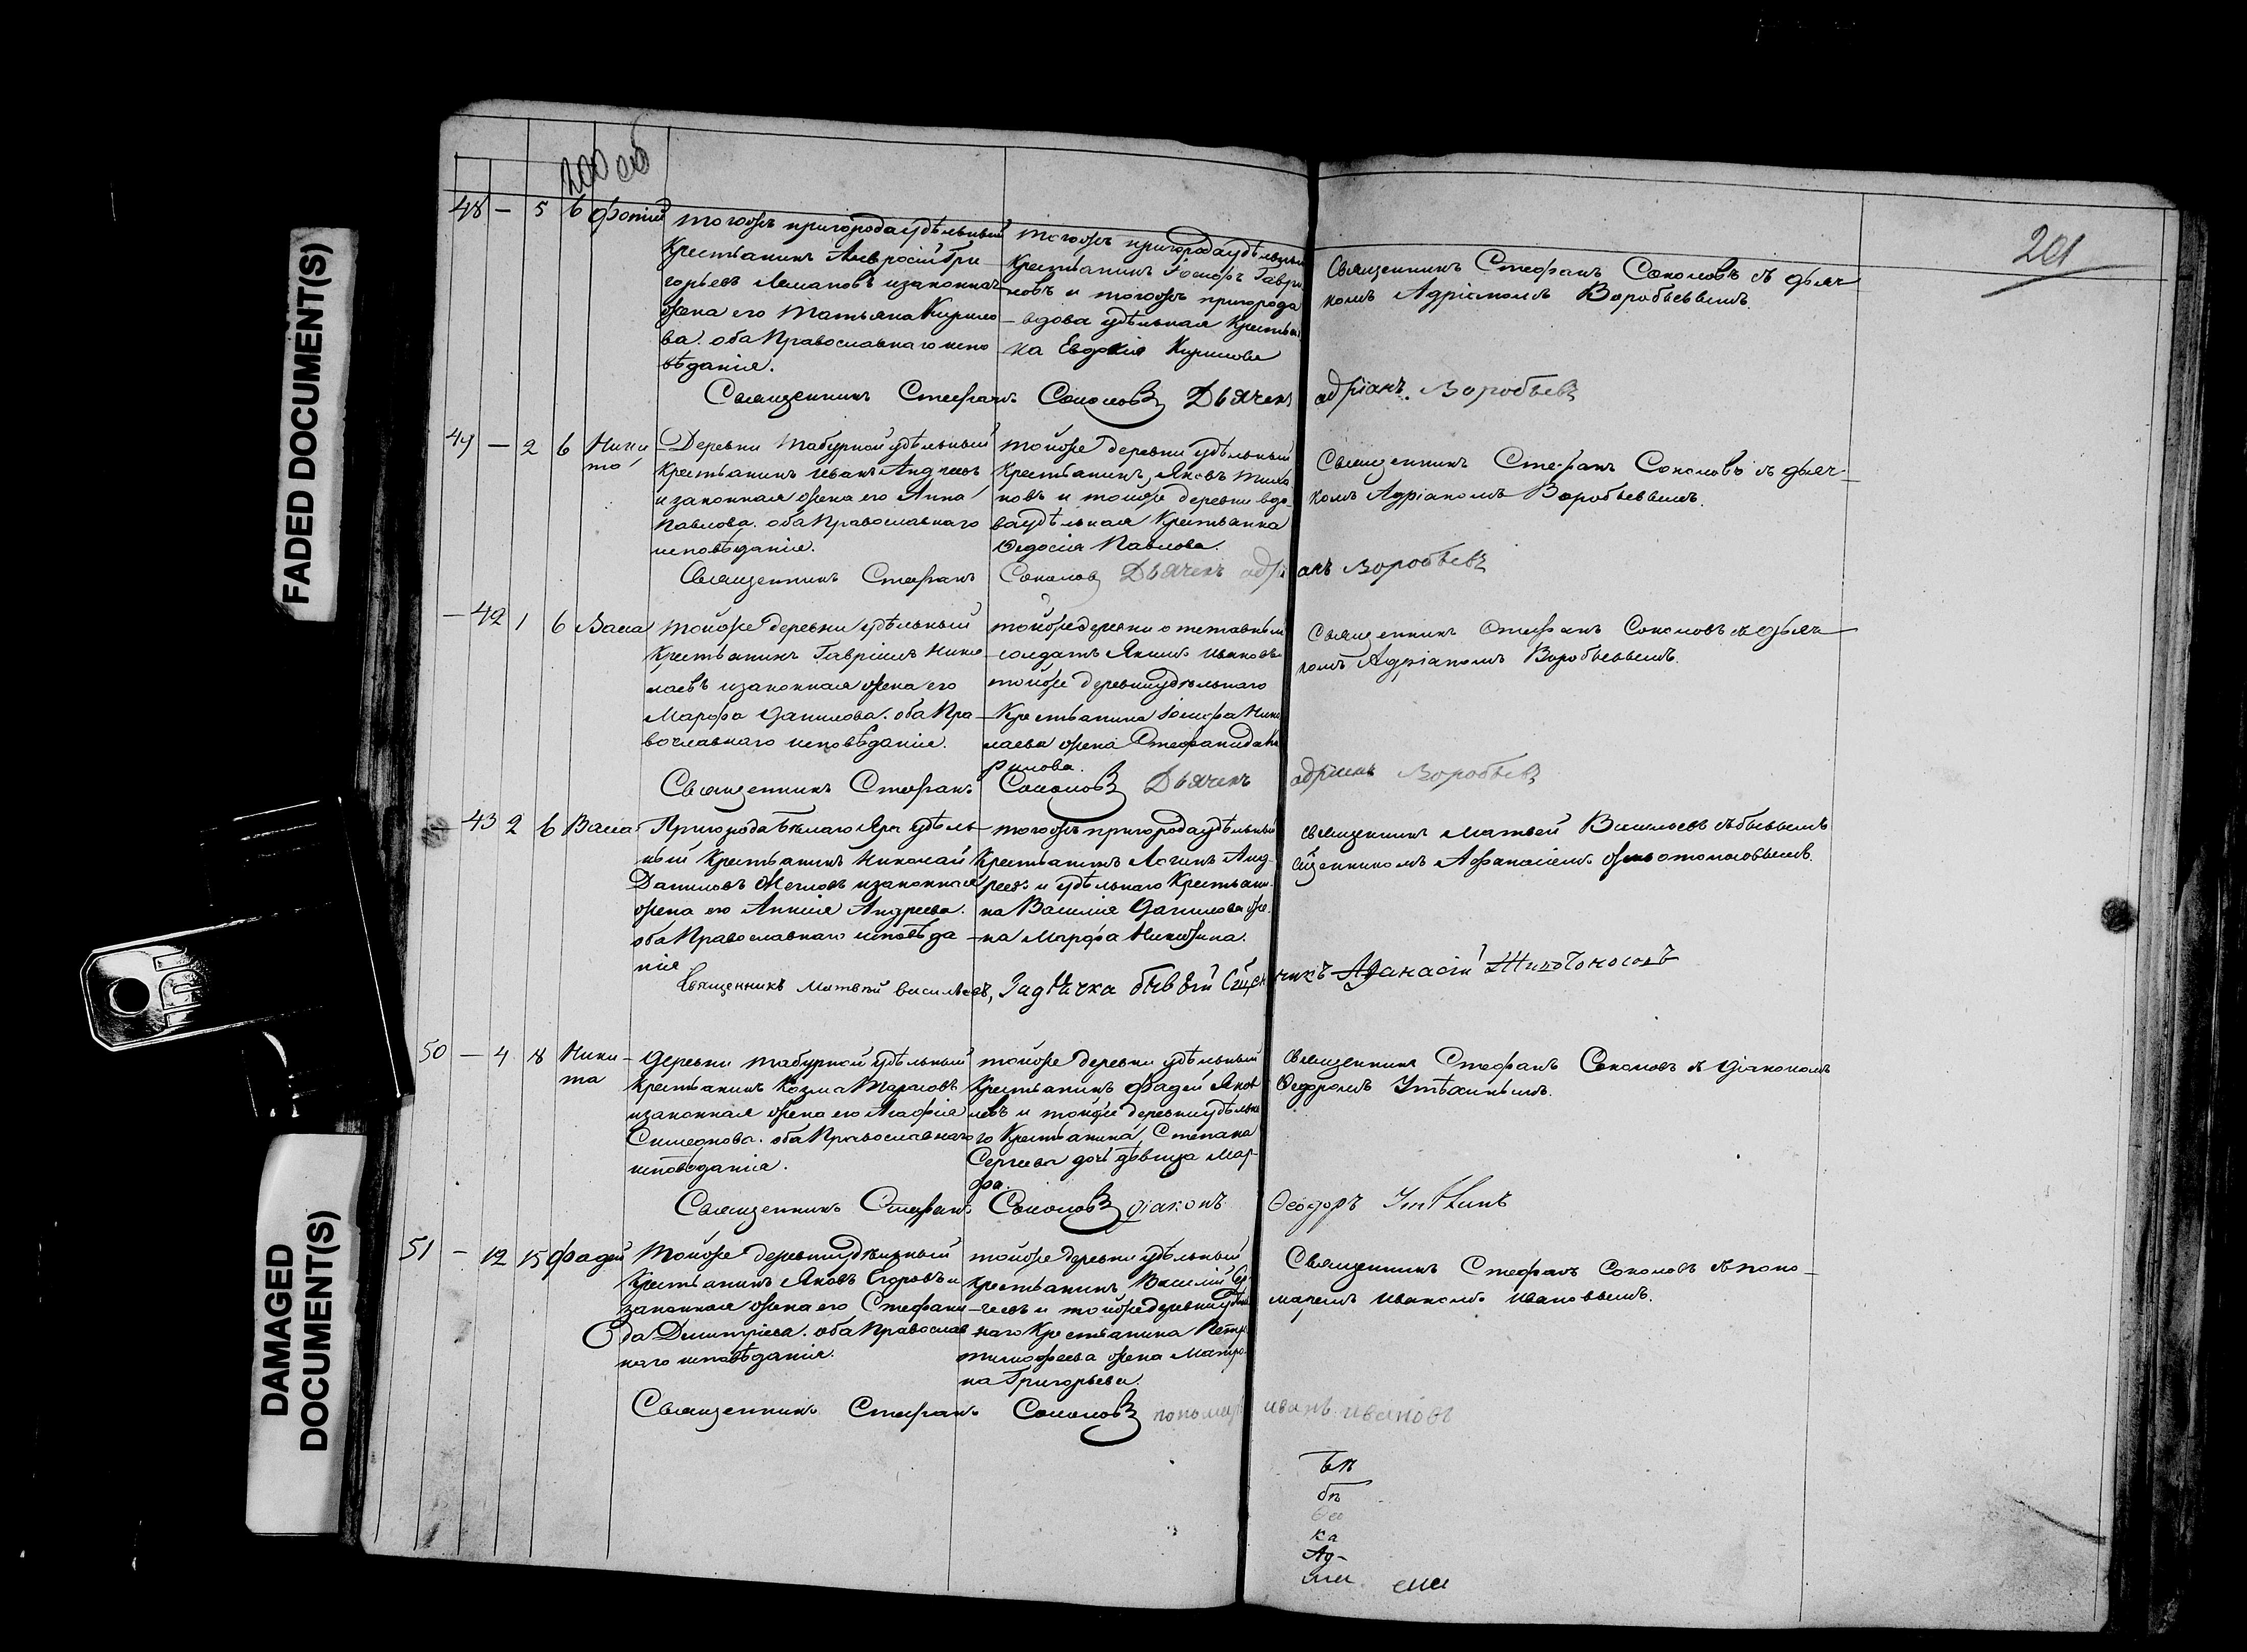 200 об
201
48 — 5 6 Фотій
тогожъ пригорода удѣльный
Крестьянинъ Амвросій Гри
горьевъ изаконная
жена его Татьяна Кирило
ва. оба Православнаго испо
вѣданія.
тогожъ пригорода удѣльный
Крестьянинъ Іосифъ Гаври
ловъ и тогожъ пригорода
вдова удѣльная Крестьян
ка Евдокія Кирилова
Священникъ Стефанъ Соколовъ съ дьяч
комъ Адріаномъ Воробьевымъ.
Священникъ Стефанъ Соколовъ Дьячекъ адріанъ Воробьевъ
49 — 2 6 Ники
та
Деревни Табурной удѣльный
Крестьянинъ Иванъ Андреевъ
изаконная жена его Анна
Павлова. оба Православнаго
исповѣданія.
тойже деревни удѣльный
Крестьянинъ, Яковъ
новъ и тойже деревни вдо
ва удѣльная Крестьянка
Ѳедосія Павлова.
Священникъ Стефанъ Соколовъ съ дьяч-
комъ Адріаномъ Воробьевымъ.
Священникъ Стефанъ Соколовъ Дьячекъ адріанъ Воробьевъ
— 42 1 6 Васса
тойже деревни удѣльный
Крестьянинъ Гавріилъ Нико
лаевъ изаконная жена его
Марфа Данилова. оба Пра
вославнаго исповѣданія.
тойже деревни отставный
солдатъ Якимъ Ивановъ
тойже деревни удѣльнаго
Крестьянина Іосифа Нико
лаева жена Стефанида Ки
рилова.
Священникъ Стефанъ Соколовъ съ дьяч
комъ Адріаномъ Воробьевымъ.
Священникъ Стефанъ Соколовъ Дьячекъ адріанъ Воробьевъ
— 43 2 6 Васса
Пригорода Бѣлаго Яра удѣль
ный Крестьянинъ Николай
Даниловъ изаконная
жена его Анисія Андреева.
оба Православнаго исповѣда
нія
тогожъ пригорода удѣльный
Крестьянинъ Логинъ Анд
реевъ и удѣльнаго Крестьяни
на Василія Данилова же
на Марфа Никитина.
священникъ Матвей Васильевъ съ бывшимъ
сщенникомъ Афанасіемъ Животоносовымъ.
Священникъ Матвей Васильевъ, За дьячка бывшій Сщенникъ Афанасій Животоносовъ
50 — 4 18 Ники
та
Деревни Табурной удѣльный
Крестьянинъ Козма Тарасовъ
изаконная жена его Агафія
Симеонова. оба Православнаго
исповѣданія.
тойже деревни удѣльный
Крестьянинъ Фадей Яков
левъ и тойже деревни удѣльна
го Крестьянина Степана
Сергеева дочь дѣвица Мар
фа.
Священникъ Стефанъ Соколовъ съ діакономъ
Ѳедоромъ Утѣхинымъ.
Священникъ Стефанъ Соколовъ діаконъ Ѳеодоръ Утѣхинъ
51 — 12 15 Фадей
Тойже деревни удѣльный
Крестьянинъ Яковъ Егоровъ и
законная жена его Стефани
да Димитріева. оба Православ
наго исповѣданія.
тойже деревни удѣльный
Крестьянинъ Василій Сер
геевъ и тойже деревни удѣль
наго Крестьянина Петра
Тимофеева жена Матро
на Григорьева.
Священникъ Стефанъ Соколовъ съ поно
маремъ Иваномъ Ивановымъ.
Священникъ Стефанъ Соколовъ пономарь иванъ ивановъ
ка
Ад-
FADED DOCUMENT(S)
DAMAGED
DOCUMENT(S)